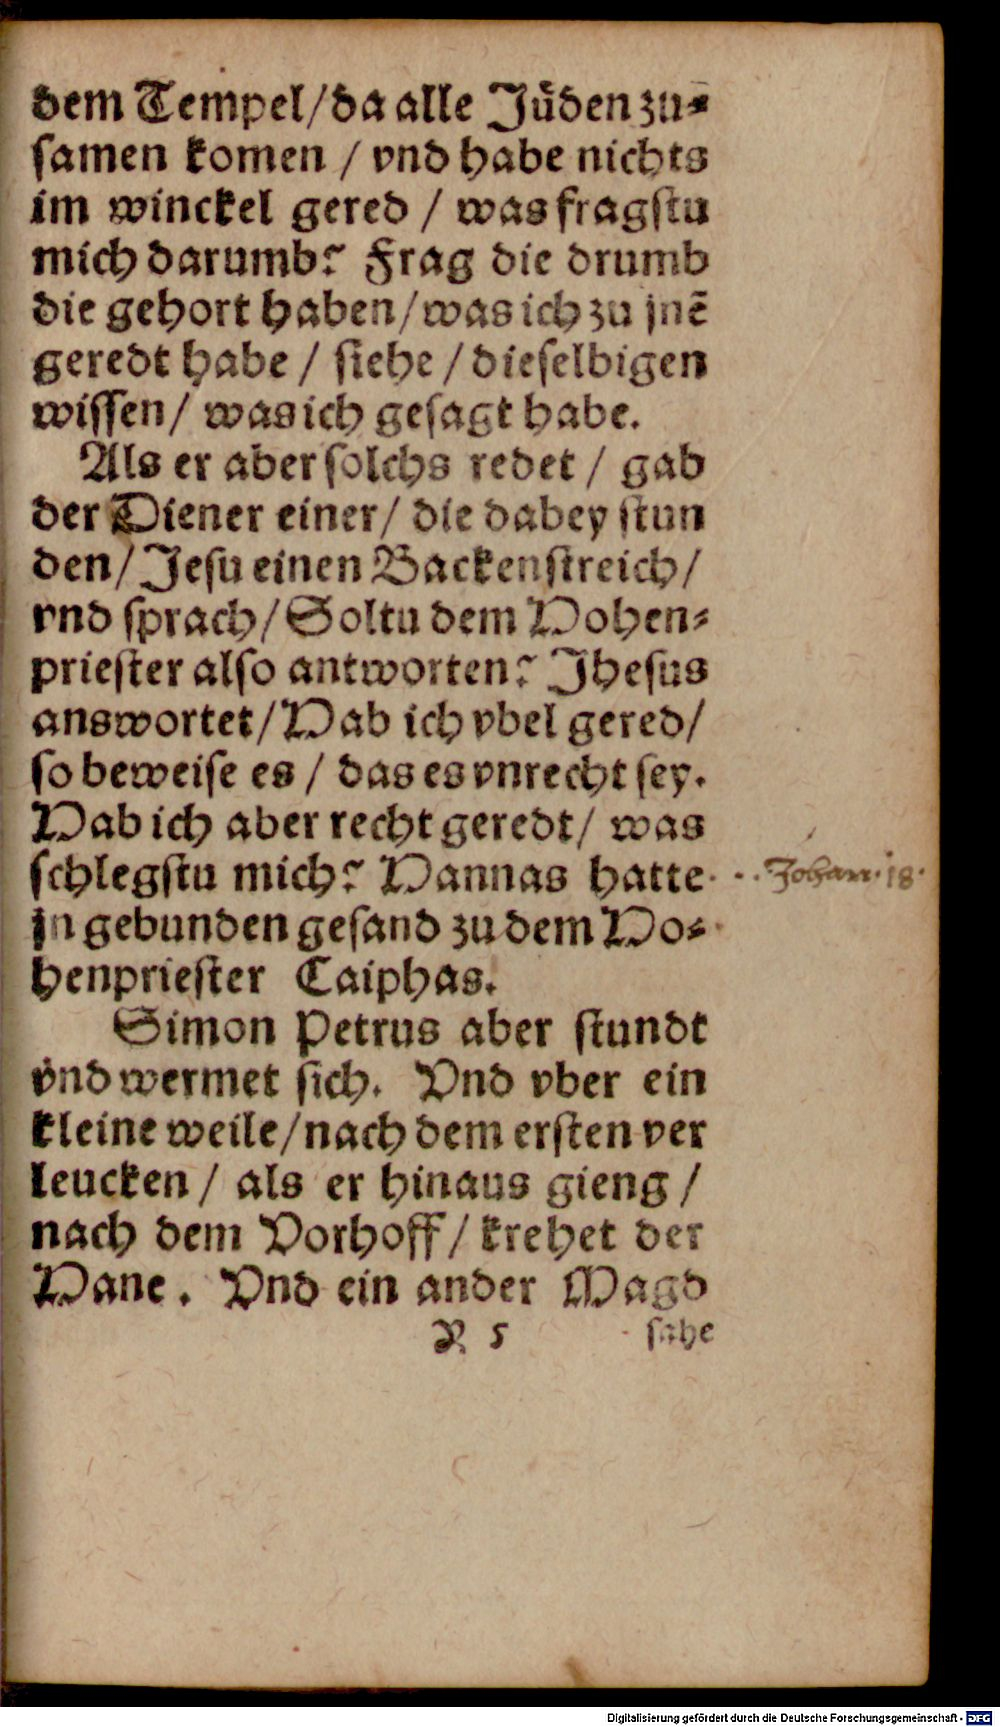 dem Tempel/da alle Jüden zu⸗
samen komen / vnd habe nichts
im winckel gered / was fragstu
mich darumb? Frag die drumb
die gehort haben/was ich zu jnē
geredt habe / siehe / dieselbigen
wissen/ was ich gesagt habe.
Als er aber solchs redet / gab
der Diener einer/ die dabey stun
den/Jesu einen Backenstreich/
vnd sprach/Soltu dem Hohen⸗
priester also antworten? Jhesus
answortet/Hab ich vbel gered/
so beweise es / das es vnrecht sey.
Hab ich aber recht geredt/ was
schlegstu mich? Hannas hatte
jn gebunden gesand zu dem Ho⸗
henpriester Caiphas.
Johan. 18.
Simon Petrus aber stundt
vnd wermet sich. Vnd vber ein
kleine weile/nach dem ersten ver
leucken / als er hinaus gieng /
nach dem Vorhoff/ krehet der
Hane. Vnd ein ander Magd
N 5 sahe
Digitalisierung gefördert durch die Deutsche Forschungsgemeinschaft - DFG